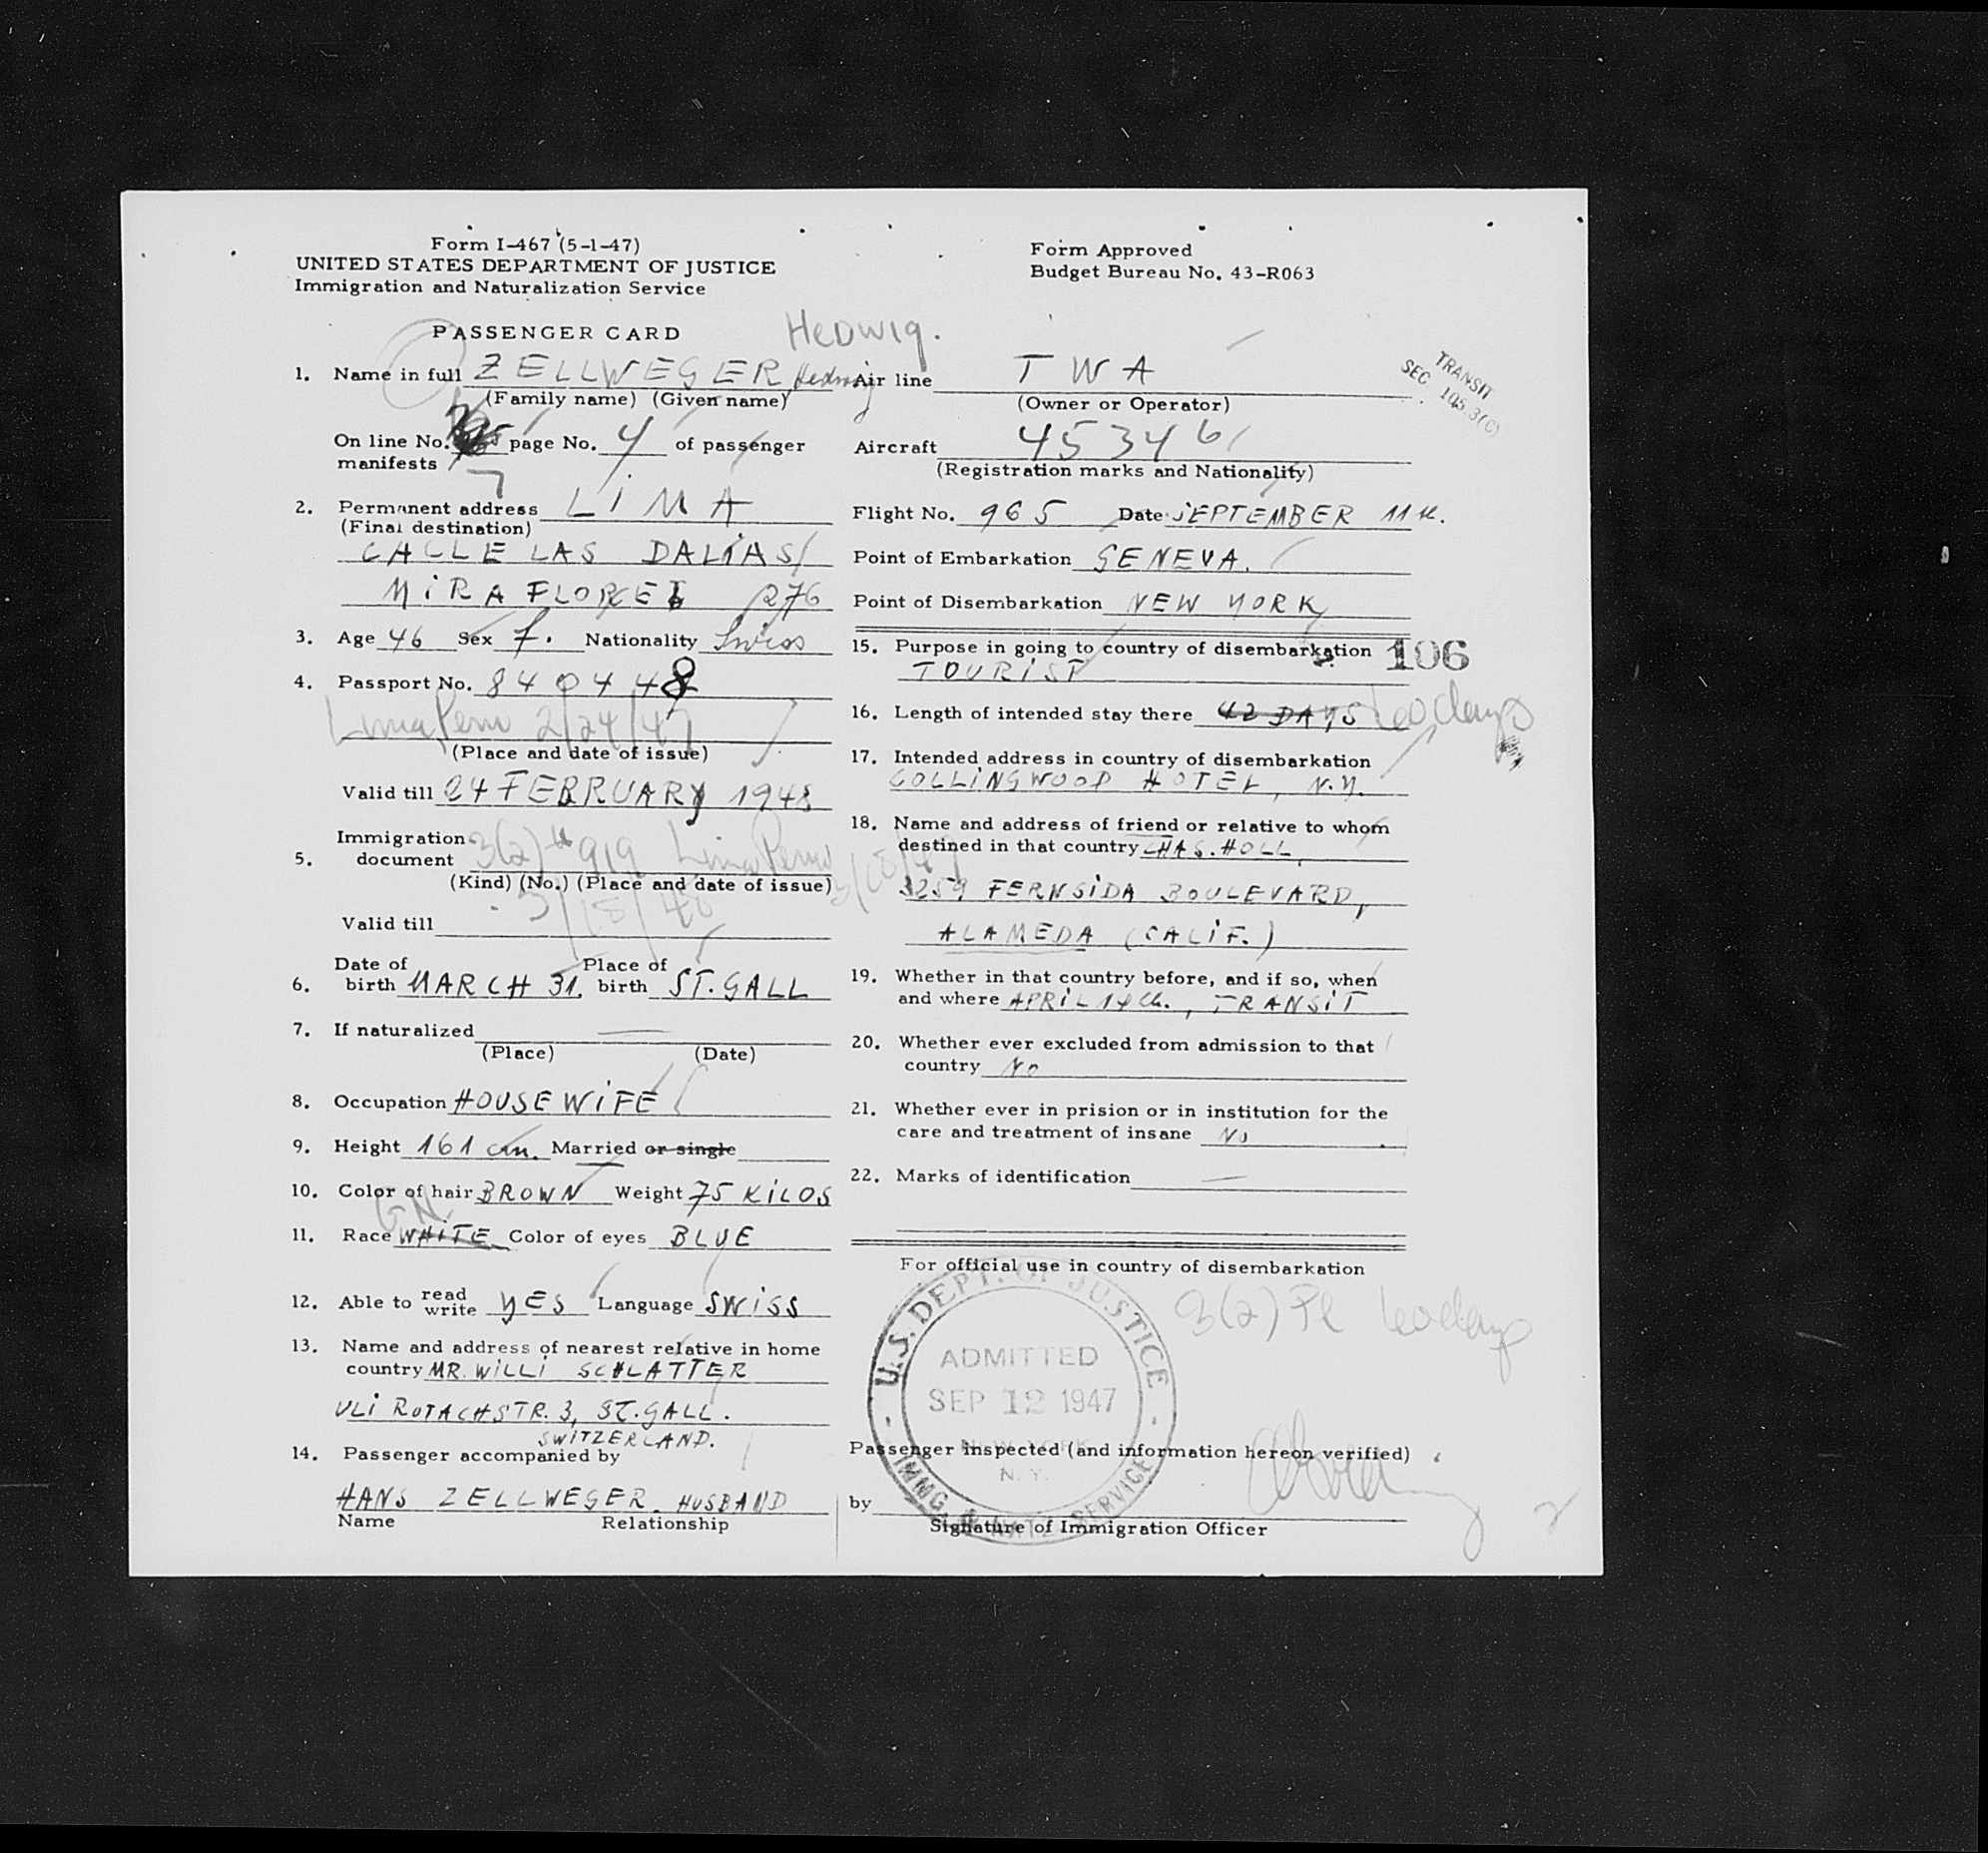 Form I-467 (5-1-47)
UNITED STATES DEPARTMENT OF JUSTICE
Immigration and Naturalization Service
Form Approved
Budget Bureau No. 43-R063
PASSENGER CARD
HEDWIG.
TRANSIT
SEC 105.3(C)
1. Name in full ZELLWEGER Hedwig
(Family name) (Given name)
On line No. page No. 4 of passenger
manifests 7
2. Permanent address LIMA
(Final destination)
CALLE LAS DALIAS
MIRAFLORES 276
3. Age 46 Sex f. Nationality Swiss
4. Passport No. 840448
Lima Peru 2/24/47
(Place and date of issue)
Valid till 24 FEBRUARY 1948
Immigration
5. document 3(2) #919 Lima Peru
(Kind) (No.) (Place and date of issue)
3/18/48
Valid till
Date of Place of
6. birth MARCH 31. birth ST. GALL
7. If naturalized —
(Place) (Date)
8. Occupation HOUSEWIFE
9. Height 161 cm. Married or single
10. Color of hair BROWN Weight 75 KILOS
11. Race WHITE Color of eyes BLUE
12. Able to read write YES Language SWISS
13. Name and address of nearest relative in home
country MR. WILLI SCHLATTER
ULI ROTACHSTR. 3, ST. GALL.
SWITZERLAND.
14. Passenger accompanied by
HANS ZELLWEGER. HUSBAND
Name Relationship
Air line TWA
(Owner or Operator)
Aircraft 45346
(Registration marks and Nationality)
Flight No. 965 Date SEPTEMBER 11th.
Point of Embarkation GENEVA.
Point of Disembarkation NEW YORK
15. Purpose in going to country of disembarkation 106
TOURIST
16. Length of intended stay there 42 DAYS 60 days
17. Intended address in country of disembarkation
COLLINGWOOD HOTEL, N.Y.
18. Name and address of friend or relative to whom
destined in that country CHAS. HOLL,
3259 FERNSIDA BOULEVARD,
ALAMEDA (CALIF.)
19. Whether in that country before, and if so, when
and where APRIL 14th., TRANSIT
20. Whether ever excluded from admission to that
country No
21. Whether ever in prision or in institution for the
care and treatment of insane No
22. Marks of identification —
For official use in country of disembarkation
U.S. DEPT. OF JUSTICE
ADMITTED
SEP 12 1947
NEW YORK
N.Y.
IMMG. & NATZ. SERVICE
3(2) 60 days
Passenger inspected (and information hereon verified)
by
Signature of Immigration Officer